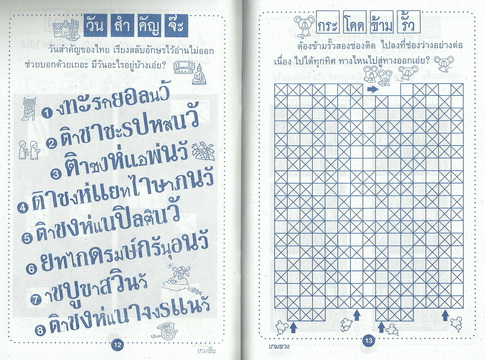 วัน สำ คัญ จ๊ะ
วันสำคัญของไทย เรียงสลับอักษรไว้อ่านไม่ออก
ช่วยบอกด้วยเถอะ มีวันอะไรอยู่บ้างเอ่ย?
1 งทะรกยอลนวั
2 ติาชาชะรปหสนวั
3 ติาชงห่แอพ่นวั
4 ติาชงห่แยทไาษาภนวั
5 ติาชงห่แนปิลศินวั
6 ยทไกดรมษ์กรันุอนวั
7 าชบูขาสวินวั
8 ติาชงห่แนางงรแนวั
12
เกมซับ
กระ โดด ข้าม รั้ว
ต้องข้ามรั้วสองช่องติด ไปลงที่ช่องว่างอย่างต่อ
เนื่อง ไปได้ทุกทิศ ทางไหนไปสู่ทางออกเอ่ย?
13
เกมซวง